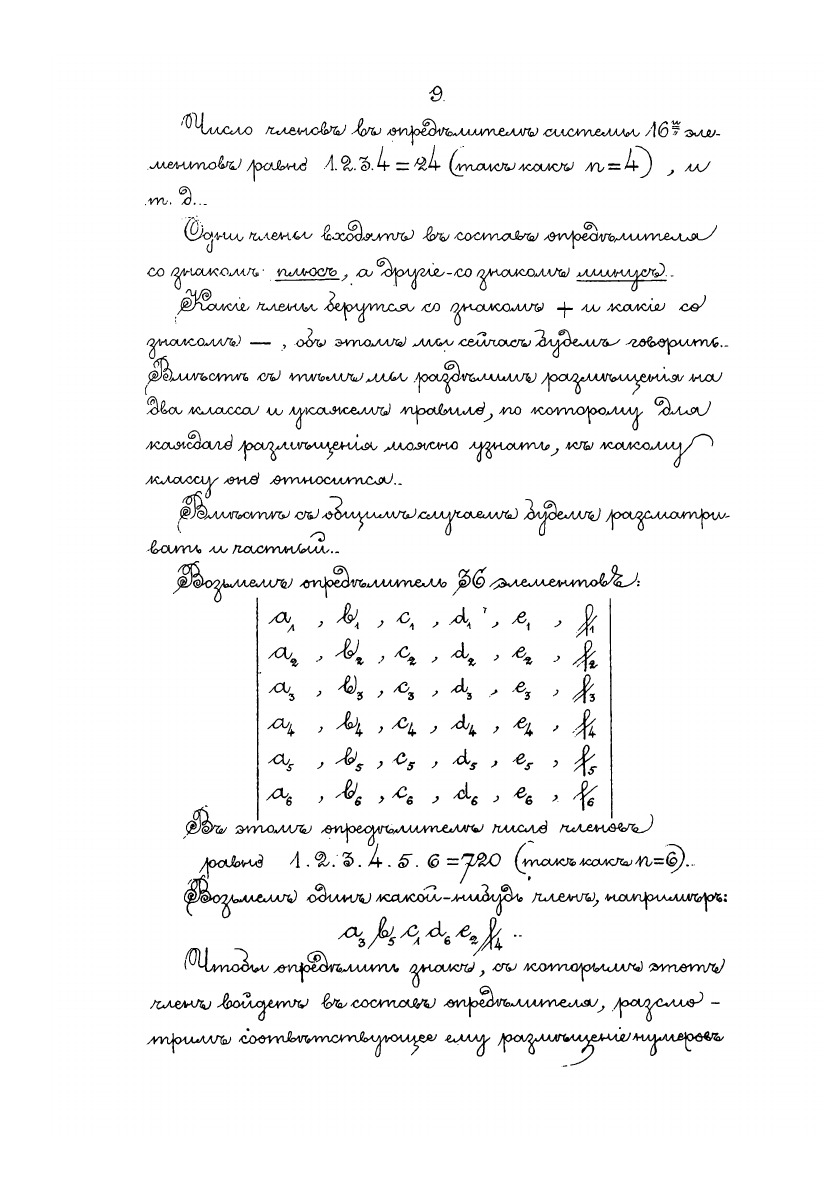 9.
Число членовъ въ опредѣлителѣ системы 16ти эле-
ментовъ равно 1.2.3.4 = 24 (такъ какъ n = 4) , и
т. д..
Одни члены входятъ въ составъ опредѣлителя
со знакомъ плюсъ, а другіе - со знакомъ минусъ..
Какіе члены берутся со знакомъ + и какіе со
знакомъ — , объ этомъ мы сейчасъ будемъ говорить..
Вмѣстѣ съ тѣмъ мы раздѣлимъ размѣщенія на
два класса и укажемъ правило, по которому для
каждаго размѣщенія можно узнать, къ какому
классу оно относится..
Вмѣстѣ съ общимъ случаемъ будемъ разсматри-
вать и частный..
Возьмемъ опредѣлитель 36 элементовъ:
a₁ , b₁ , c₁ , d₁ , e₁ , f₁
a₂ , b₂ , c₂ , d₂ , e₂ , f₂
a₃ , b₃ , c₃ , d₃ , e₃ , f₃
a₄ , b₄ , c₄ , d₄ , e₄ , f₄
a₅ , b₅ , c₅ , d₅ , e₅ , f₅
a₆ , b₆ , c₆ , d₆ , e₆ , f₆
Въ этомъ опредѣлителѣ число членовъ
равно 1 . 2 . 3 . 4 . 5 . 6 = 720 (такъ какъ n=6)..
Возьмемъ одинъ какой-нибудь членъ, напримѣръ:
a₃ b₅ c₁ d₆ e₂ f₄ ..
Чтобы опредѣлить знакъ, съ которымъ этотъ
членъ войдетъ въ составъ опредѣлителя, разсмо-
тримъ соотвѣтствующее ему размѣщеніе нумеровъ